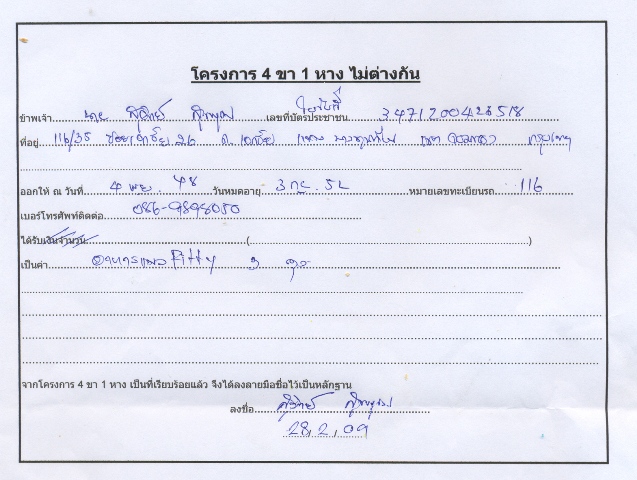 โครงการ 4 ขา 1 หาง ไม่ต่างกัน
ใบขับขี่
ข้าพเจ้า นาย เลขที่บัตรประชาชน
ที่อยู่ 116/35 ซอย 26 ถ. แขวง เขต กรุงเทพฯ
ออกให้ ณ วันที่ 4 พ.ย. 48 วันหมดอายุ 3 ก.ย. 52 หมายเลขทะเบียนรถ 116
เบอร์โทรศัพท์ติดต่อ 086-9898050
ได้รับเงินจำนวน ( )
เป็นค่า อาหารแมว Fitty 3 ถุง
จากโครงการ 4 ขา 1 หาง เป็นที่เรียบร้อยแล้ว จึงได้ลงลายมือชื่อไว้เป็นหลักฐาน
ลงชื่อ
28, 2, 09